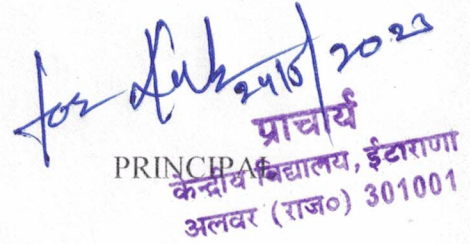 for 24/6/2023
प्राचार्य
PRINCIPAL
केन्द्रीय विद्यालय, ईटाराणा
अलवर (राज०) 301001